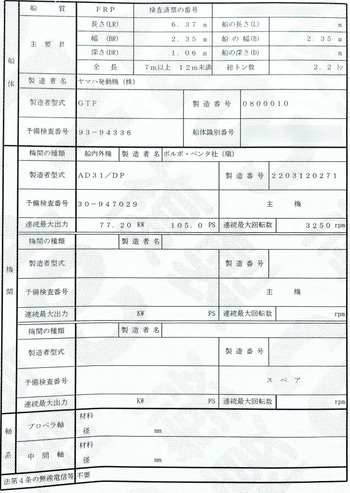 船質 FRP 検査済票の番号
船体 主要目 長さ(LR) 6.37 m 船の長さ(L) m
幅(BR) 2.35 m 船の幅(B) 2.35 m
深さ(DR) 1.06 m 船の深さ(D) m
全長 7m以上 12m未満 総トン数 2.2 トン
製造者名 ヤマハ発動機(株)
製造者型式 GTF 製造番号 0800010
予備検査番号 93-94336 船体識別番号
機関 機関の種類 船内外機 製造者名 ボルボ・ペンタ社(瑞)
製造者型式 AD31/DP 製造番号 2203120271
予備検査番号 30-947029 主機
連続最大出力 77.20 KW 105.0 PS 連続最大回転数 3250 rpm
機関の種類 製造者名
製造者型式 製造番号
予備検査番号 主機
連続最大出力 KW PS 連続最大回転数 rpm
機関の種類 製造者名
製造者型式 製造番号
予備検査番号 スペア
連続最大出力 KW PS 連続最大回転数 rpm
軸系 プロペラ軸 材料
径 mm
中間軸 材料
径 mm
法第4条の無線電信等 不要